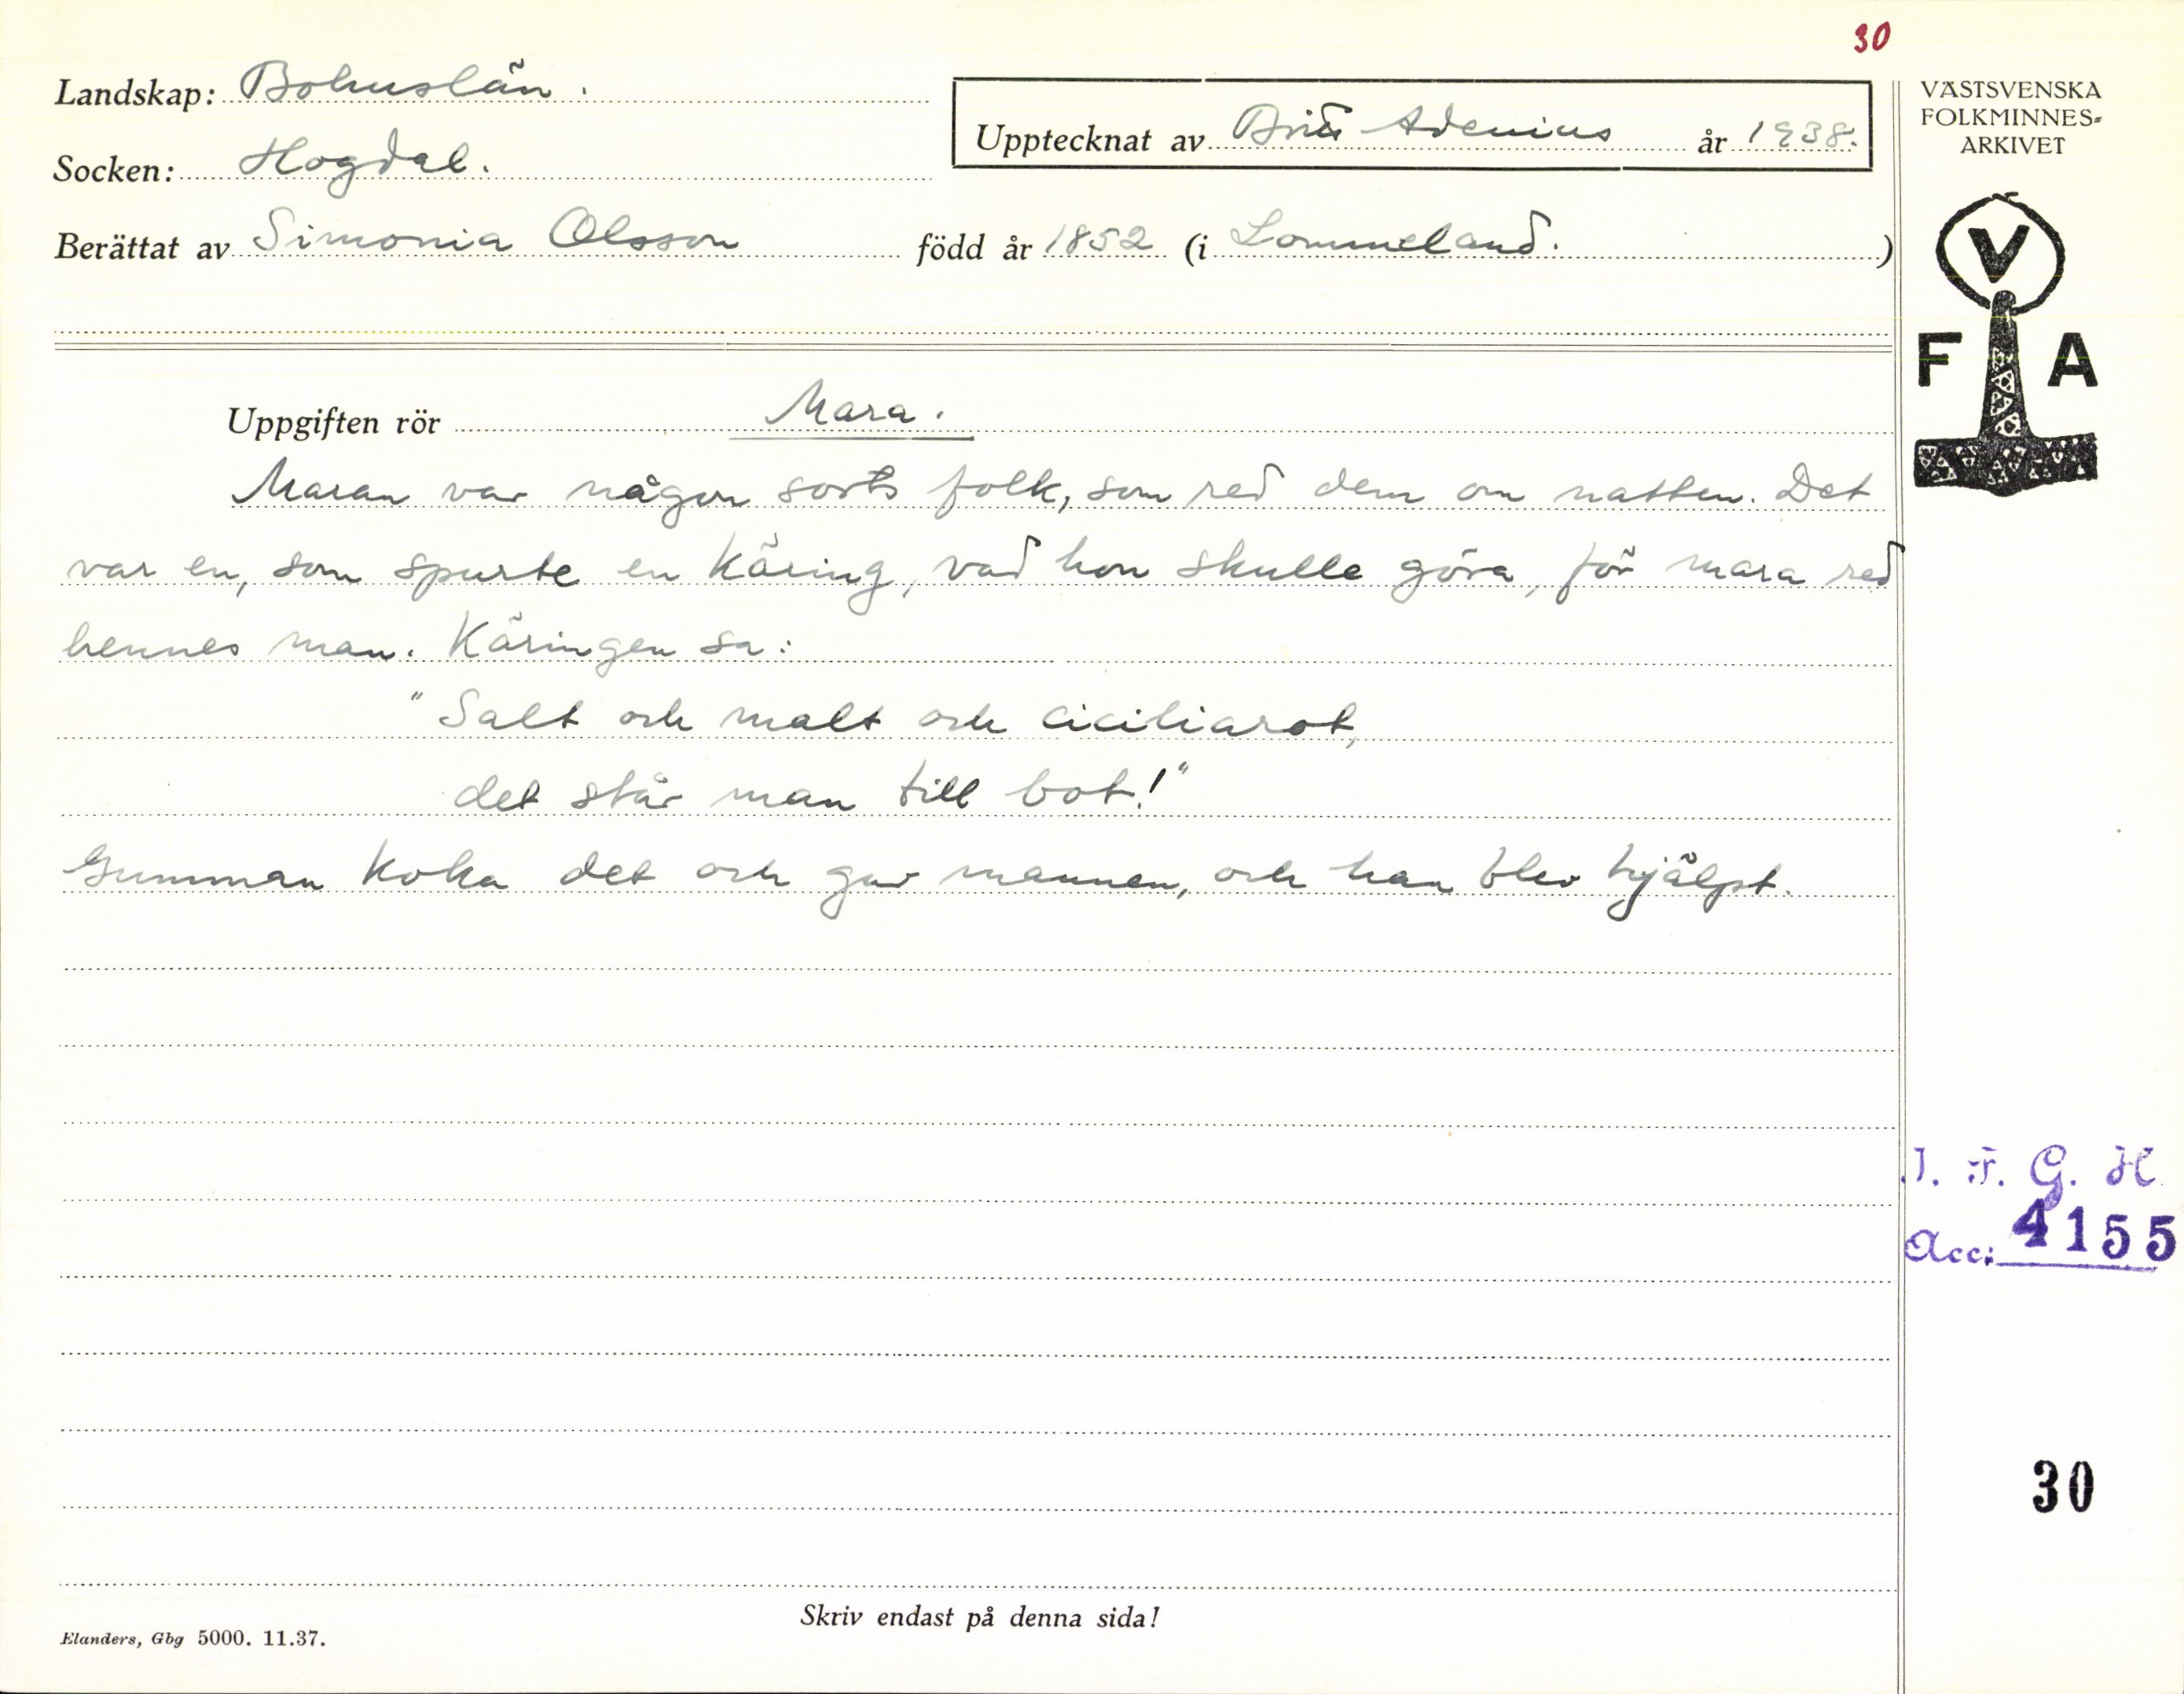 30
Landskap: Bohuslän.
VÄSTSVENSKA
FOLKMINNES-
ARKIVET
Upptecknat av Britt Adenius år 1938.
Socken: Hogdal.
Berättat av Simonia Olsson född år 1852 (i Lommeland.)
V
F A
Uppgiften rör Mara.
Maran var någon sorts folk, som red dem om natten. Det
var en, som spurte en käring, vad hon skulle göra, för mara red
hennes man. Käringen sa:
"Salt och malt och ciciliarot,
det står man till bot!"
Gumman koka det och gav mannen, och han blev hjälpt.
I. F. G. H.
Acc: 4155
30
Skriv endast på denna sida!
Elanders, Gbg 5000. 11.37.